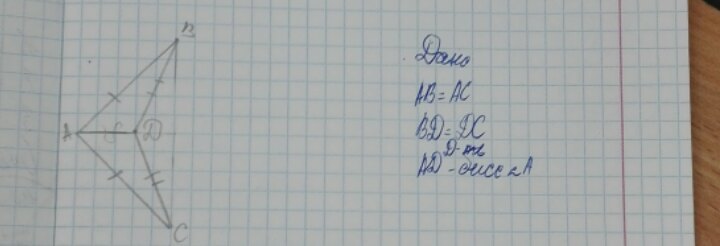 B
A
D
C
Дано
AB = AC
BD = DC
Д-ть
AD - бисс ∠A